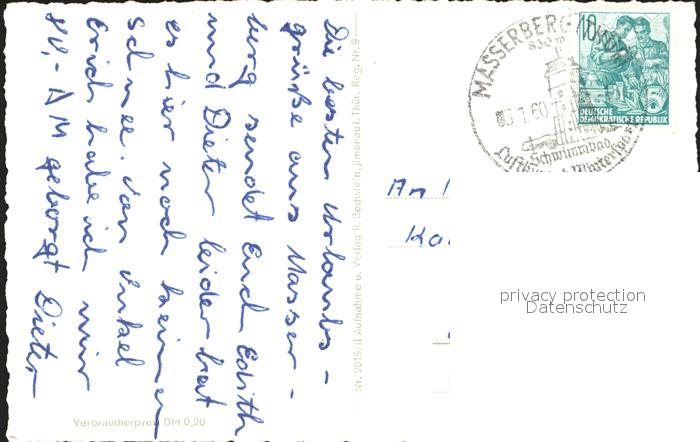 Die besten Urlaubs-
grüße aus Masser-
berg sendet Euch Edith
und Dieter leider hat
es hier noch keinen
Schnee. Von Onkel
Erich habe ich mir
80,- DM geborgt Dieter
Verbraucherpreis DM 0,20
Nr. 2019/II Aufnahme u. Verlag R. Bechstein, Jlmenau i. Thür. Reg. Nr. 9
MASSERBERG
830 m
1.60
Schwimmbad
DEUTSCHE
DEMOKRATISCHE REPUBLIK
5
An
Ka
privacy protection
Datenschutz